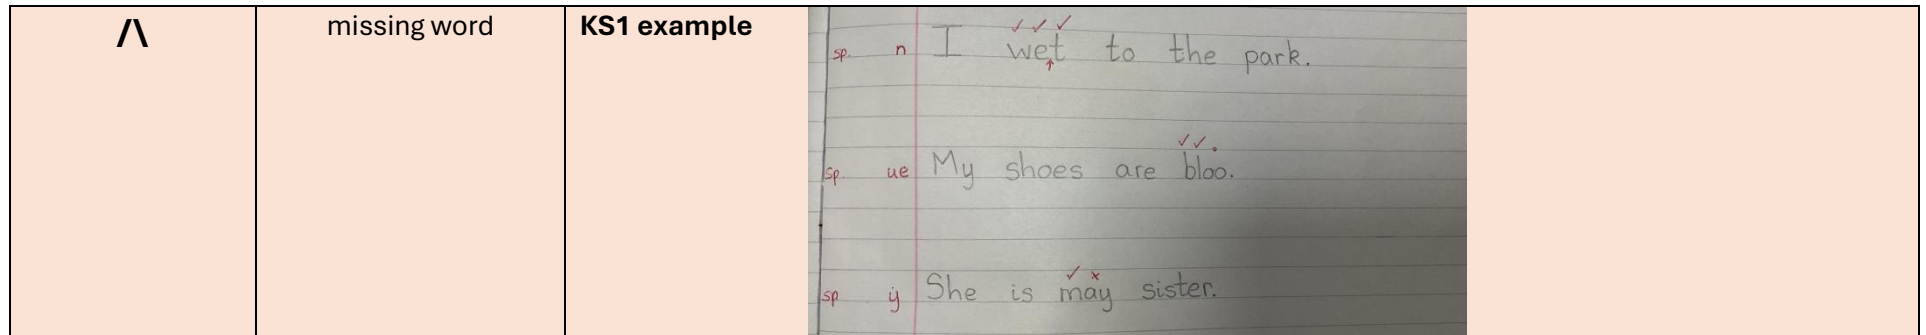 /\ missing word KS1 example
sp. n I wet to the park.
sp. ue My shoes are bloo.
sp y She is may sister.